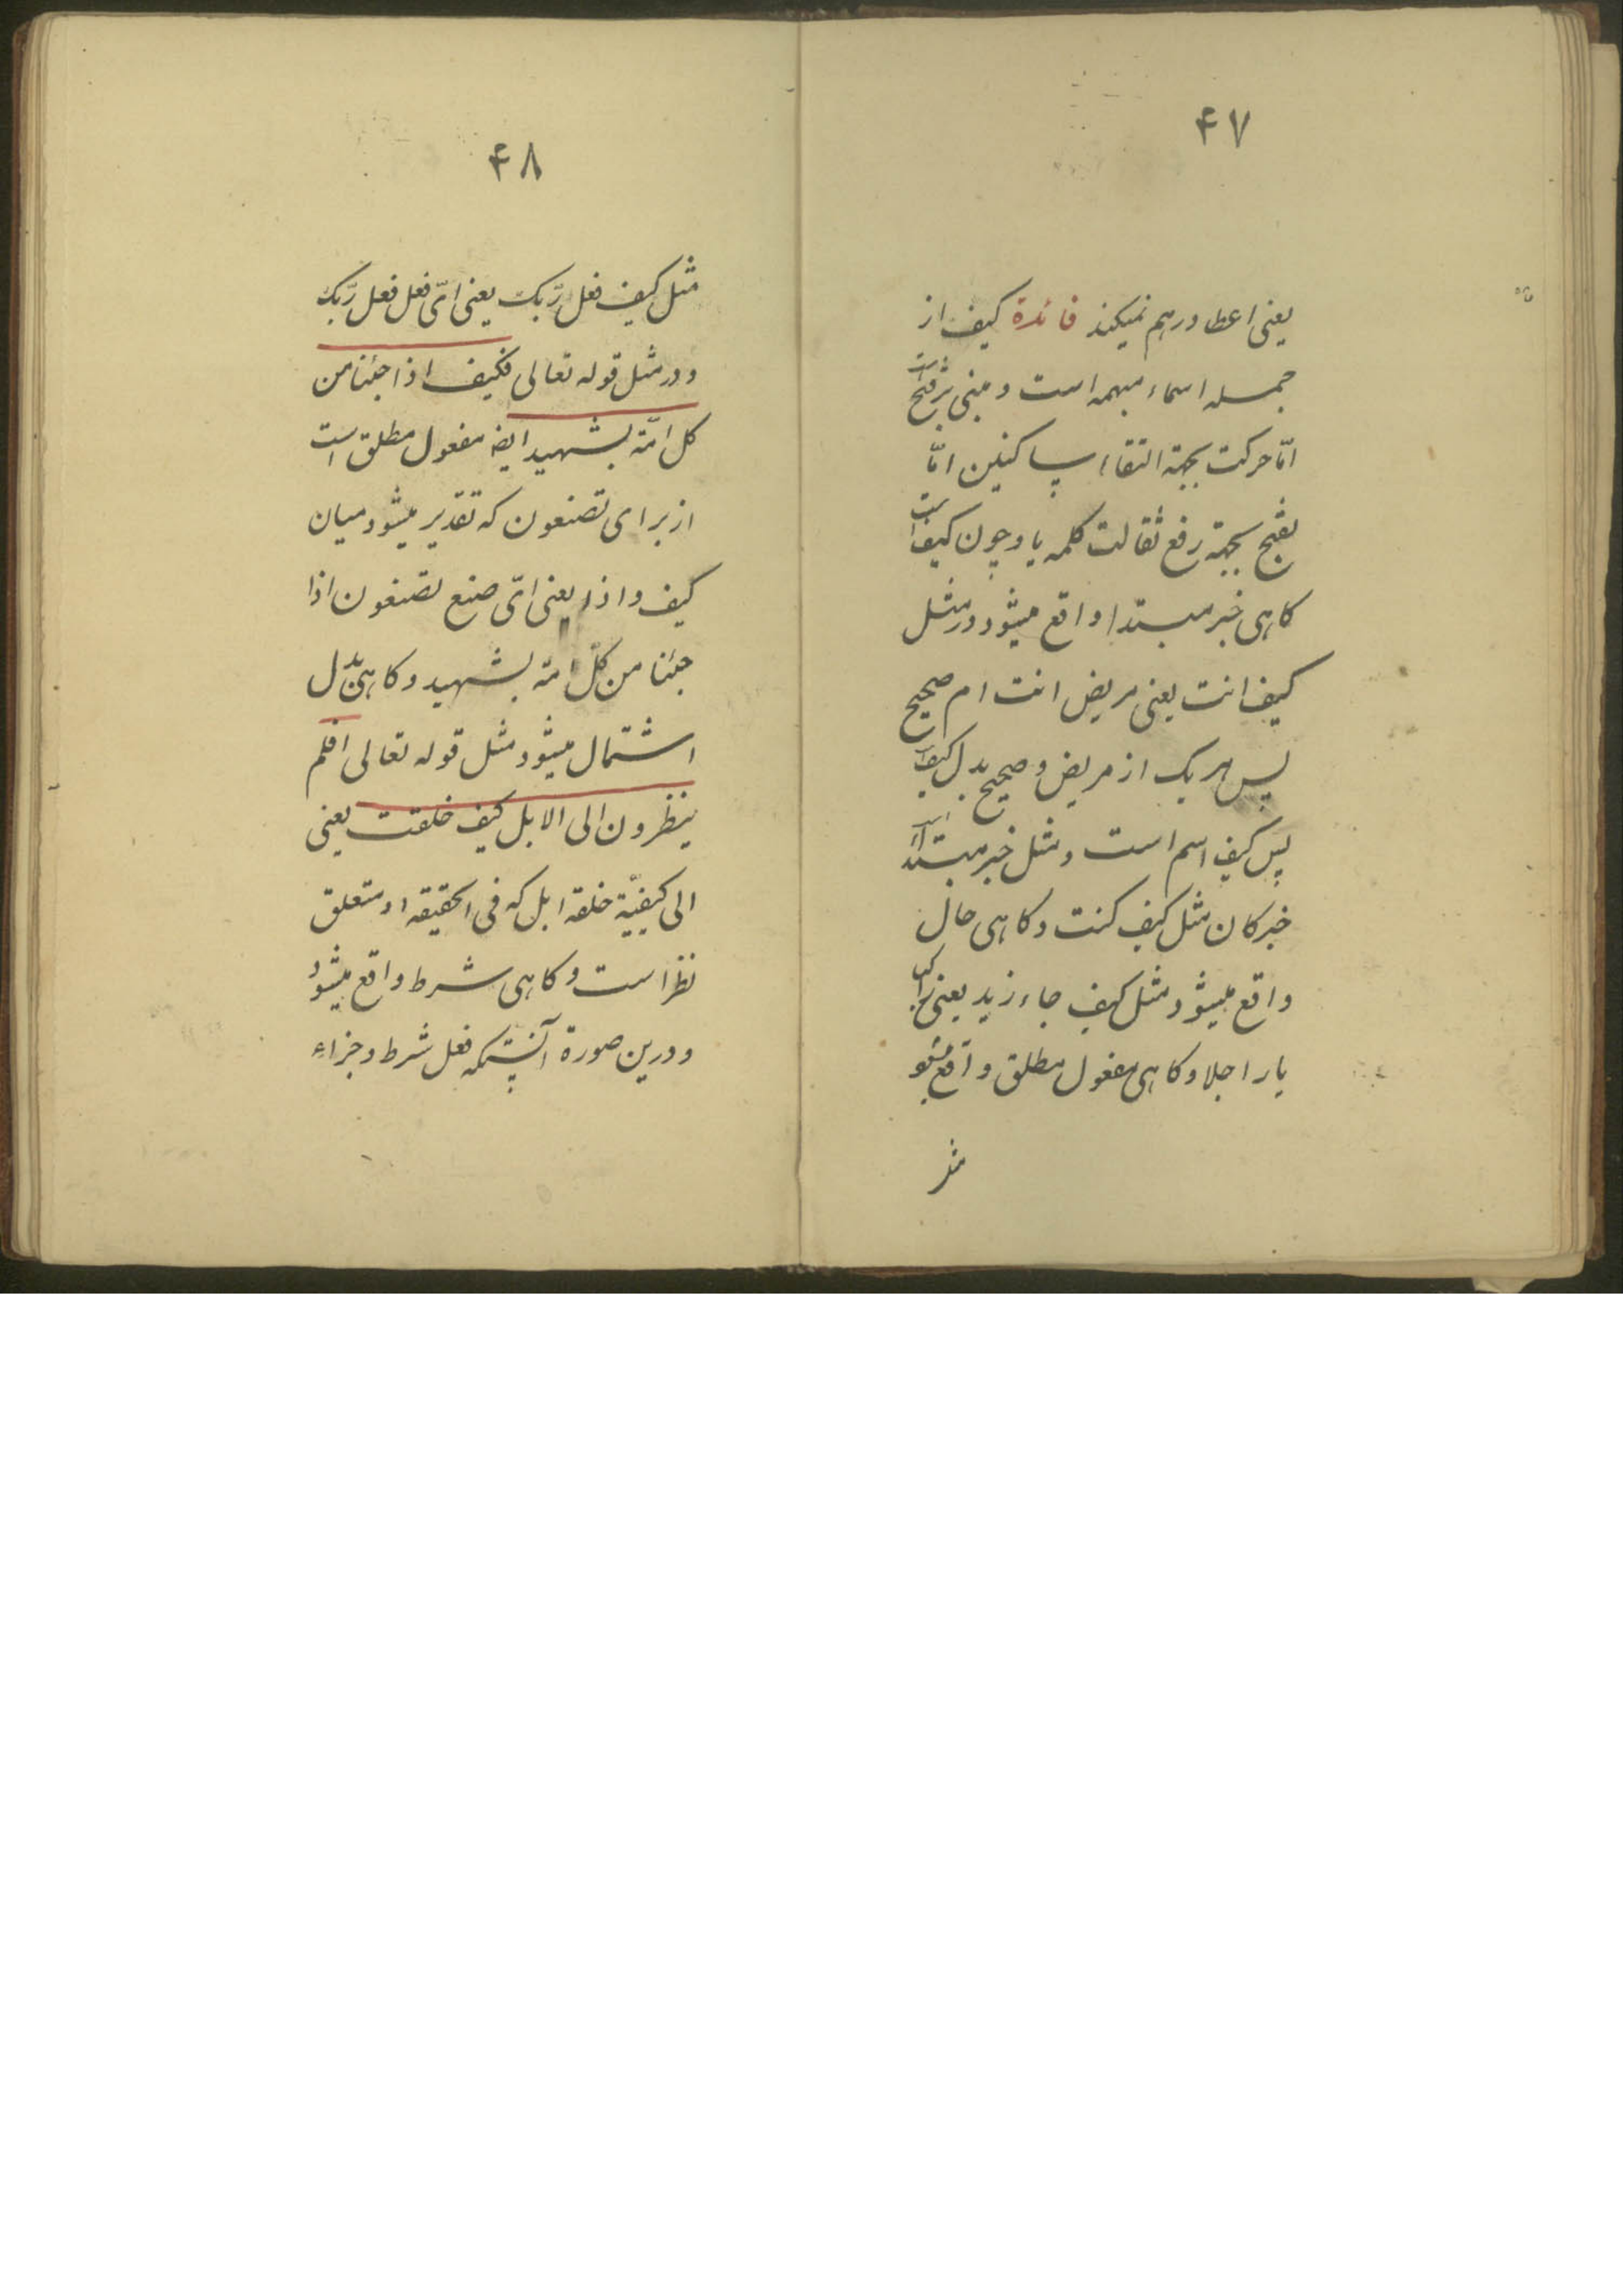 ۴۷
یعنی اعطا درهم نمیکند فائدة کیف از
جمله اسماء مبهمه است و مبنی برفتح است
امّا حرکت بجهة التقاء ساکنین امّا
بفتح بجهة رفع ثقالت کلمه یا و چون کیف است
کاهی خبر مبتدا واقع میشود در مثل
کیف انت یعنی مریض انت ام صحیح
پس هریک از مریض و صحیح بدل کیف
پس کیف اسم است و مثل خبر مبتدا است
خبر کان مثل کیف کنت و کاهی حال
واقع میشود مثل کیف جاء زید یعنی راکبا
یا راجلا و کاهی مفعول مطلق واقع میشو
مثل
۴۸
مثل کیف فعل ربّک یعنی ایّ فعل فعل ربّک
و در مثل قوله تعالی فکیف اذا جئنا من
کل امّة بشهید ایضا مفعول مطلق است
از برای تصنعون که تقدیر میشود میان
کیف و اذا یعنی ایّ صنع تصنعون اذا
جئنا من کلّ امة بشهید و کاهی بدل
اشتمال میشود مثل قوله تعالی افلم
ینظرون الی الابل کیف خلقت یعنی
الی کیفیّة خلقه ابل که فی الحقیقه او متعلق
نظر است و کاهی شرط واقع میشود
و درین صورة آنستکه فعل شرط و جزاء